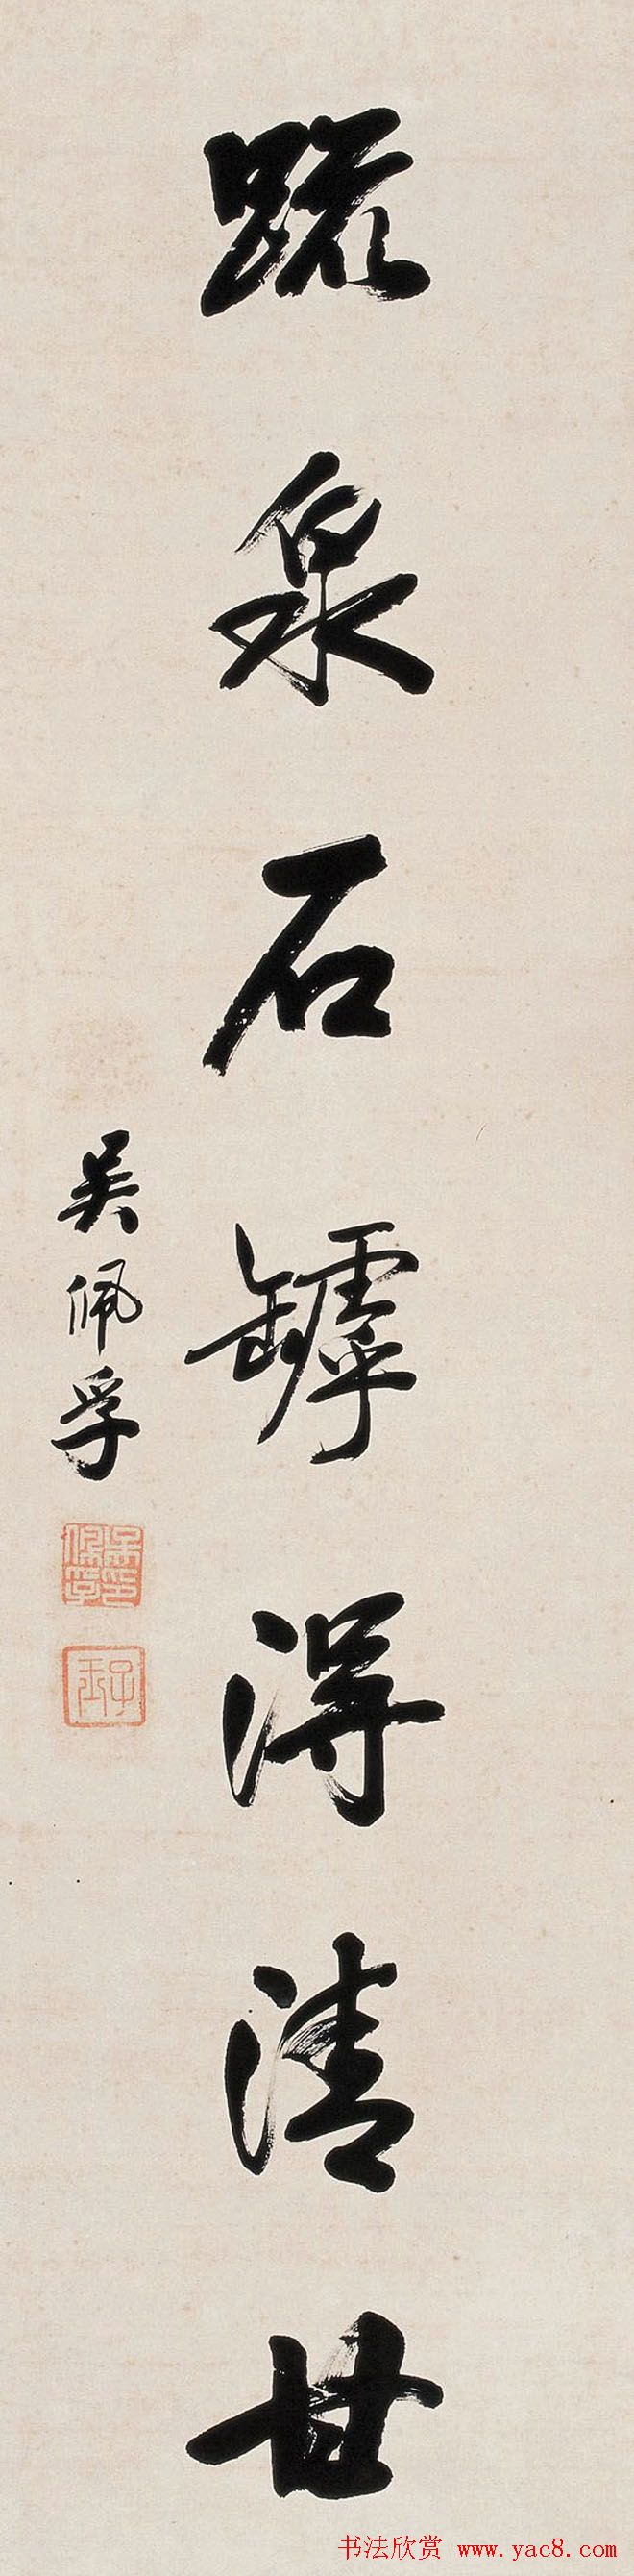 疏泉石罅得清甘
吴佩孚
吴佩孚印
子玉
书法欣赏 www.yac8.com